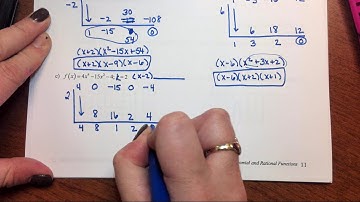 -2 30 -108
1 -15 54 0
(x+2)(x²-15x+54)
(x+2)(x-9)(x-6)
-3 -18 -12
1 3 2 0
(x-6)(x²+3x+2)
(x-6)(x+2)(x+1)
c) f(x) = 4x⁴ - 15x² - 4; 2 (x-2)
4 0 -15 0 -4
2 8 16 2 4
4 8 1 2
and Rational Functions 11